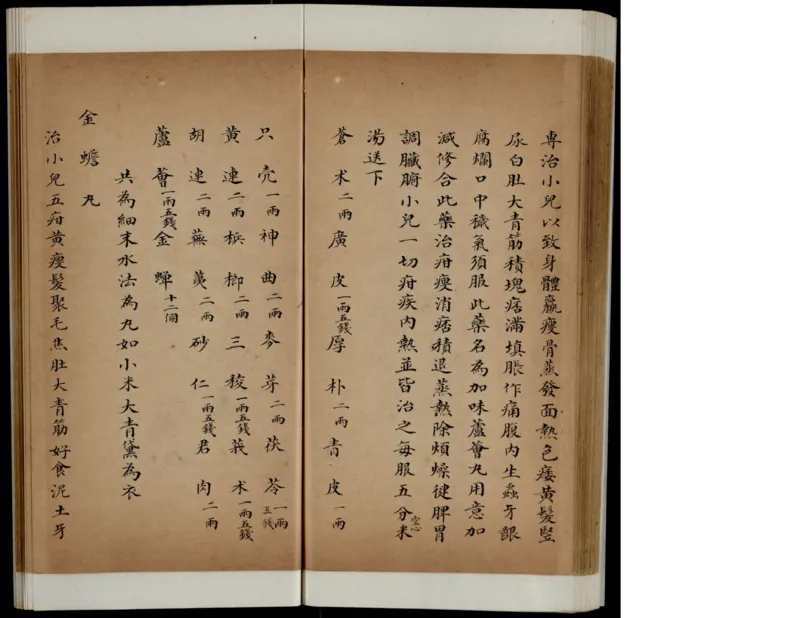 專治小兒以致身體羸瘦骨蒸發面熱色痿黃髮豎
尿白肚大青筋積塊痞滿填脹作痛腹內生蟲牙齦
腐爛口中穢氣須服此藥名為加味蘆薈丸用意加
減修合此藥治疳瘦消痞積退蒸熱除煩燥健脾胃
調臟腑小兒一切疳疾內熱並皆治之每服五分空心米
湯送下
蒼术二兩廣皮一兩五錢厚朴二兩青皮一兩
只壳一兩神曲二兩麥芽二兩茯苓一兩五錢
黃連二兩檳榔二兩三稜一兩五錢莪术一兩五錢
胡連二兩蕪荑二兩砂仁一兩五錢君肉二兩
蘆薈一兩五錢金蟬十二個
共為細末水法為丸如小米大青黛為衣
金蟾丸
治小兒五疳黃瘦髮聚毛焦肚大青筋好食泥土牙